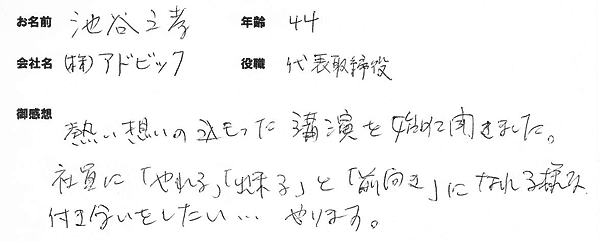 お名前 池谷立孝 年齢 44
会社名 (株)アドビック 役職 代表取締役
御感想
熱い想いの込もった講演を始めて聞きました。
社員に「やれる」「出来る」と「前向き」になれる様な
付き合いをしたい… やります。